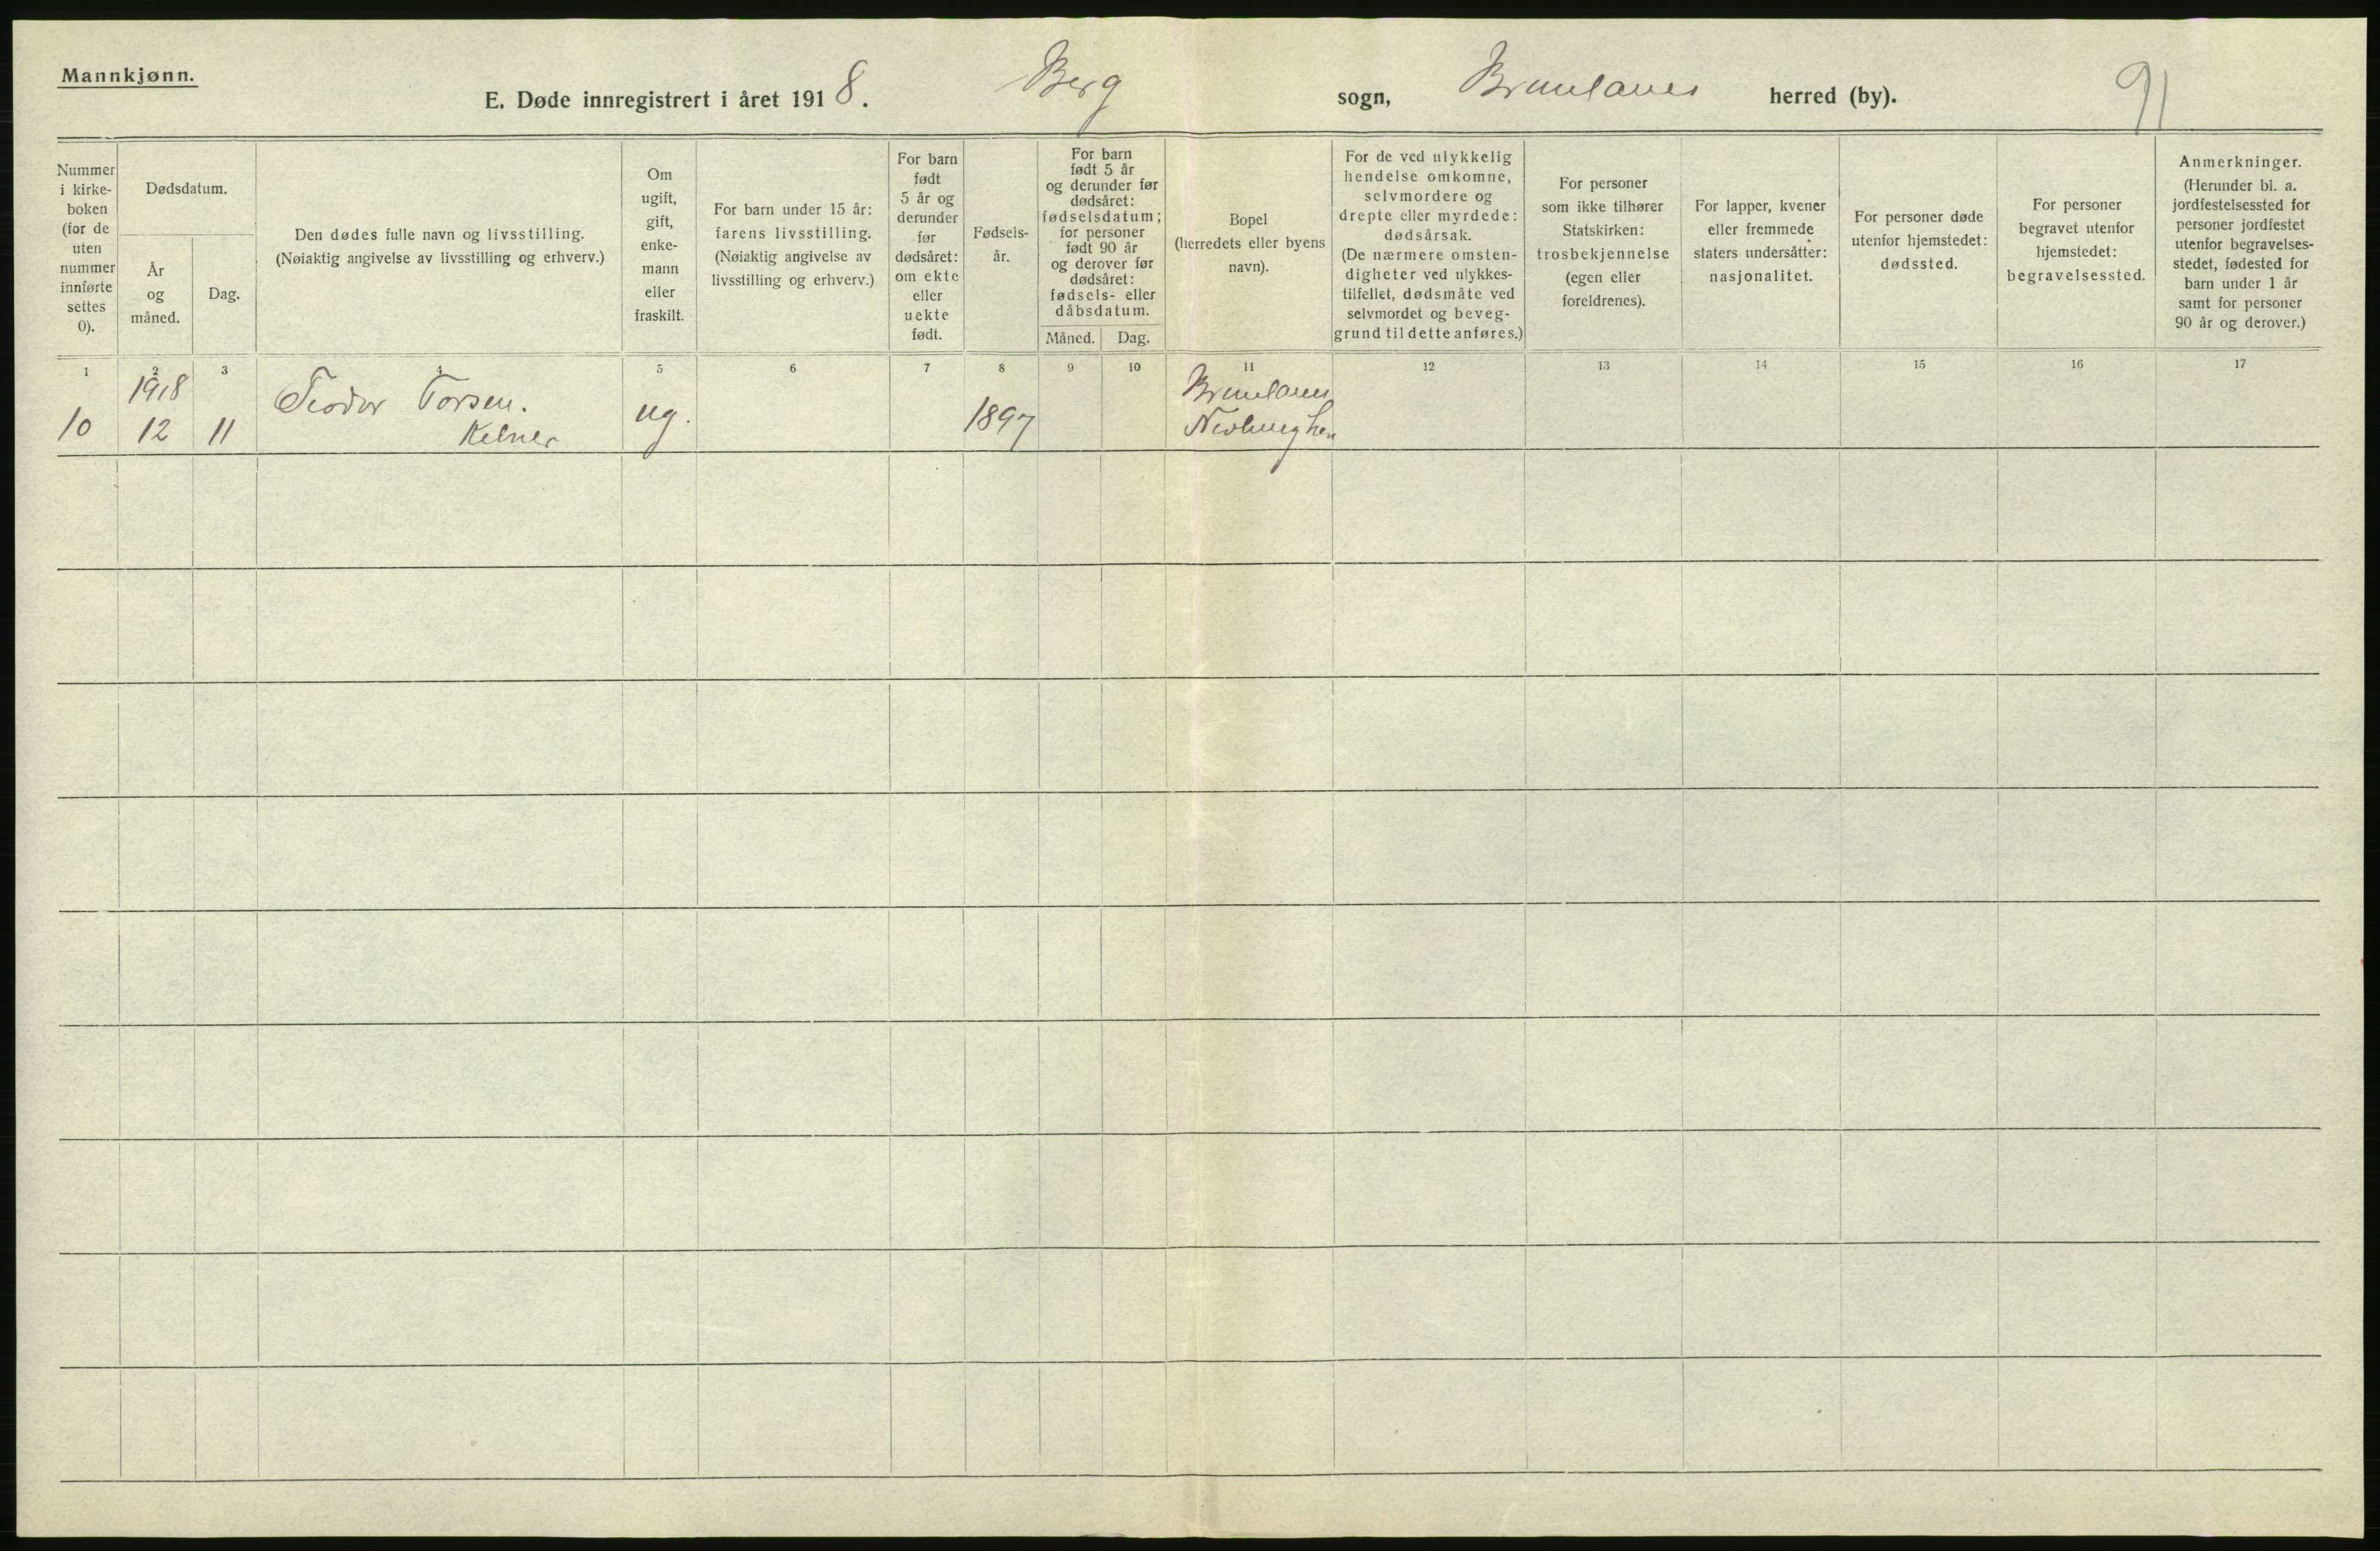 Mannkjønn.
E. Døde innregistrert i året 1918. Berg sogn, Brunlanes herred (by). 91
Nummer
i kirke-
boken
(for de
uten
nummer
innførte
settes
0).
Dødsdatum.
År
og
måned.
Dag.
Den dødes fulle navn og livsstilling.
(Nøiaktig angivelse av livsstilling og erhverv.)
Om
ugift,
gift,
enke-
mann
eller
fraskilt.
For barn under 15 år:
farens livsstilling.
(Nøiaktig angivelse av
livsstilling og erhverv.)
For barn
født
5 år og
derunder
før
dødsåret:
om ekte
eller
uekte
født.
Fødsels-
år.
For barn
født 5 år
og derunder før
dødsåret:
fødselsdatum;
for personer
født 90 år
og derover før
dødsåret:
fødsels- eller
dåbsdatum.
Måned. Dag.
Bopel
(herredets eller byens
navn).
For de ved ulykkelig
hendelse omkomne,
selvmordere og
drepte eller myrdede:
dødsårsak.
(De nærmere omsten-
digheter ved ulykkes-
tilfellet, dødsmåte ved
selvmordet og beveg-
grund til dette anføres.)
For personer
som ikke tilhører
Statskirken:
trosbekjennelse
(egen eller
foreldrenes).
For lapper, kvener
eller fremmede
staters undersåtter:
nasjonalitet.
For personer døde
utenfor hjemstedet:
dødssted.
For personer
begravet utenfor
hjemstedet:
begravelsessted.
Anmerkninger.
(Herunder bl. a.
jordfestelsessted for
personer jordfestet
utenfor begravelses-
stedet, fødested for
barn under 1 år
samt for personer
90 år og derover.)
1 2 3 4 5 6 7 8 9 10 11 12 13 14 15 16 17
1918 Brunlanes
10 12 11 Teodor Torsen. ug. 1897 Nevlunghvn
Kelner